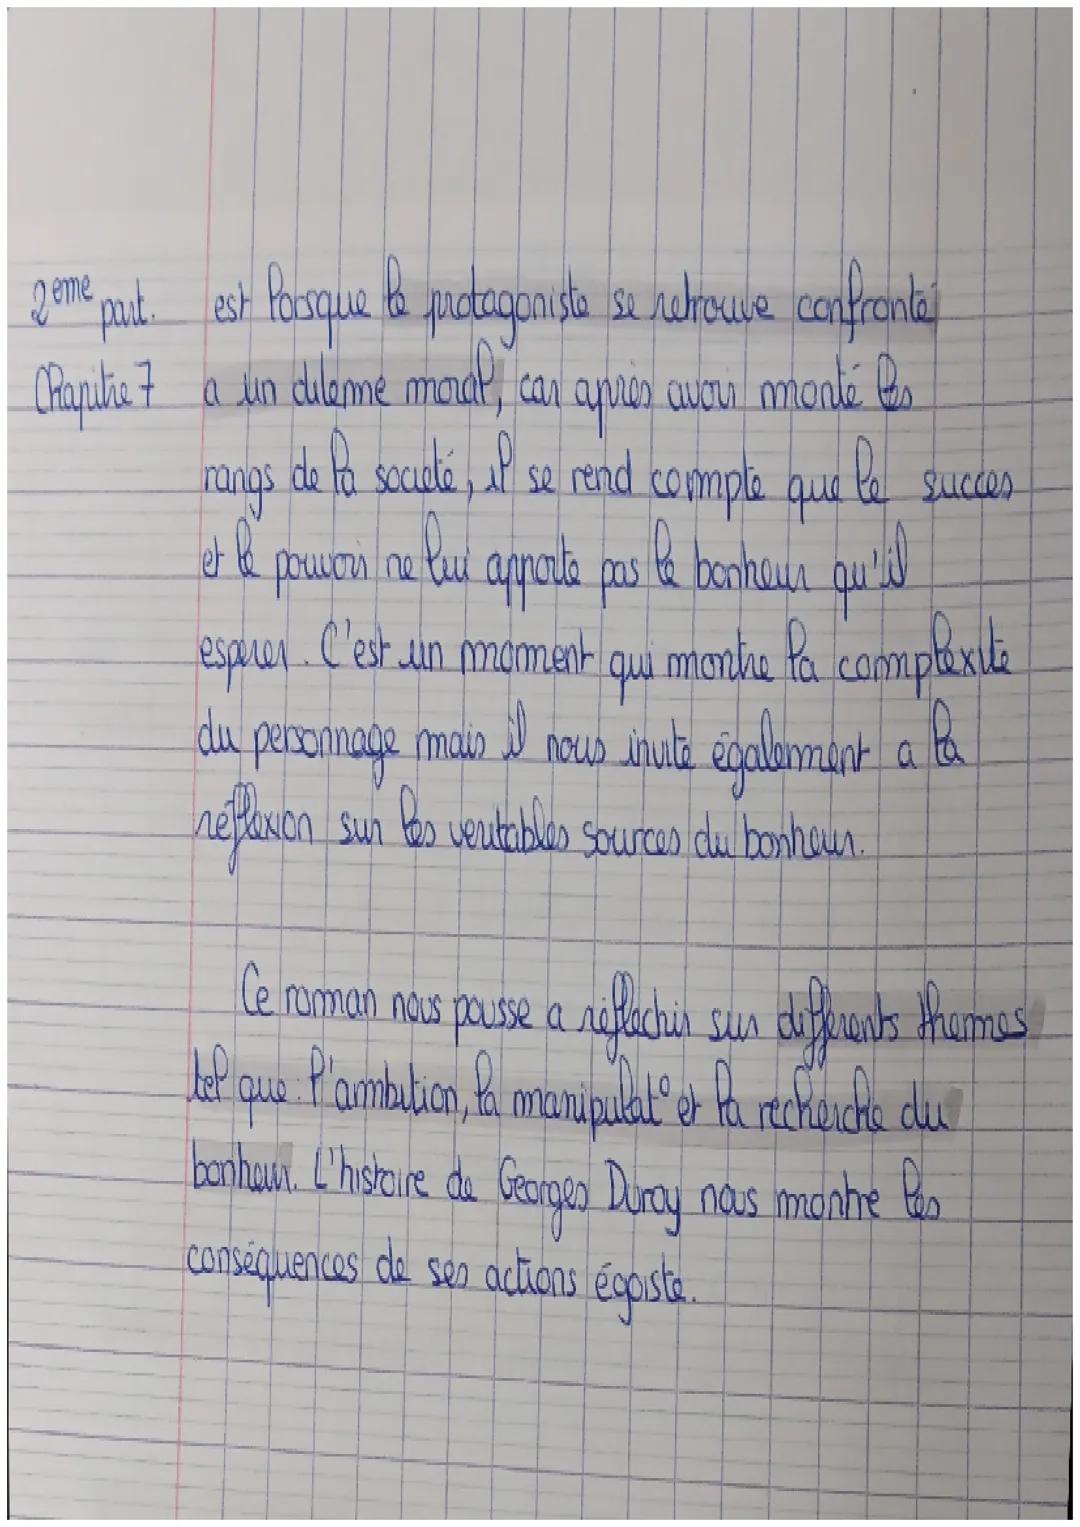 2eme part. est lorsque le protagoniste se retrouve confronté
Chapitre 7 a un dilemme moral, car après avoir monté les
rangs de la société, il se rend compte que le succes
et le pouvoir ne lui apporte pas le bonheur qu'il
esperer. C'est un moment qui montre la complexité
du personnage mais il nous invite également a la
réflexion sur les veritables sources du bonheur.
Ce roman nous pousse a réflechir sur différents themes
tel que : l'ambition, la manipulat° et la recherche du
bonheur. L'histoire de Georges Duroy nous montre les
conséquences de ses actions égoiste.